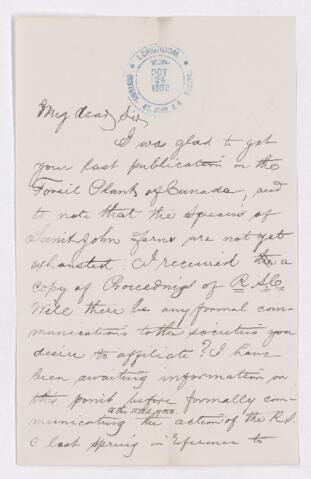 LONGROOM
V.R.
OCT
24
1892
My dear Sir,
I was glad to get
your last publication on the
Fossil Plants of Canada, and
to note that the species of
Saint John ferns are not yet
exhausted. I received the a
copy of Proceedings of R.S.C.
Will there be any formal com-
munications to the societies you
desire to affiliate? I have
been awaiting information on
this point before formally com-
municating the action of the R.S.
C last spring in reference to